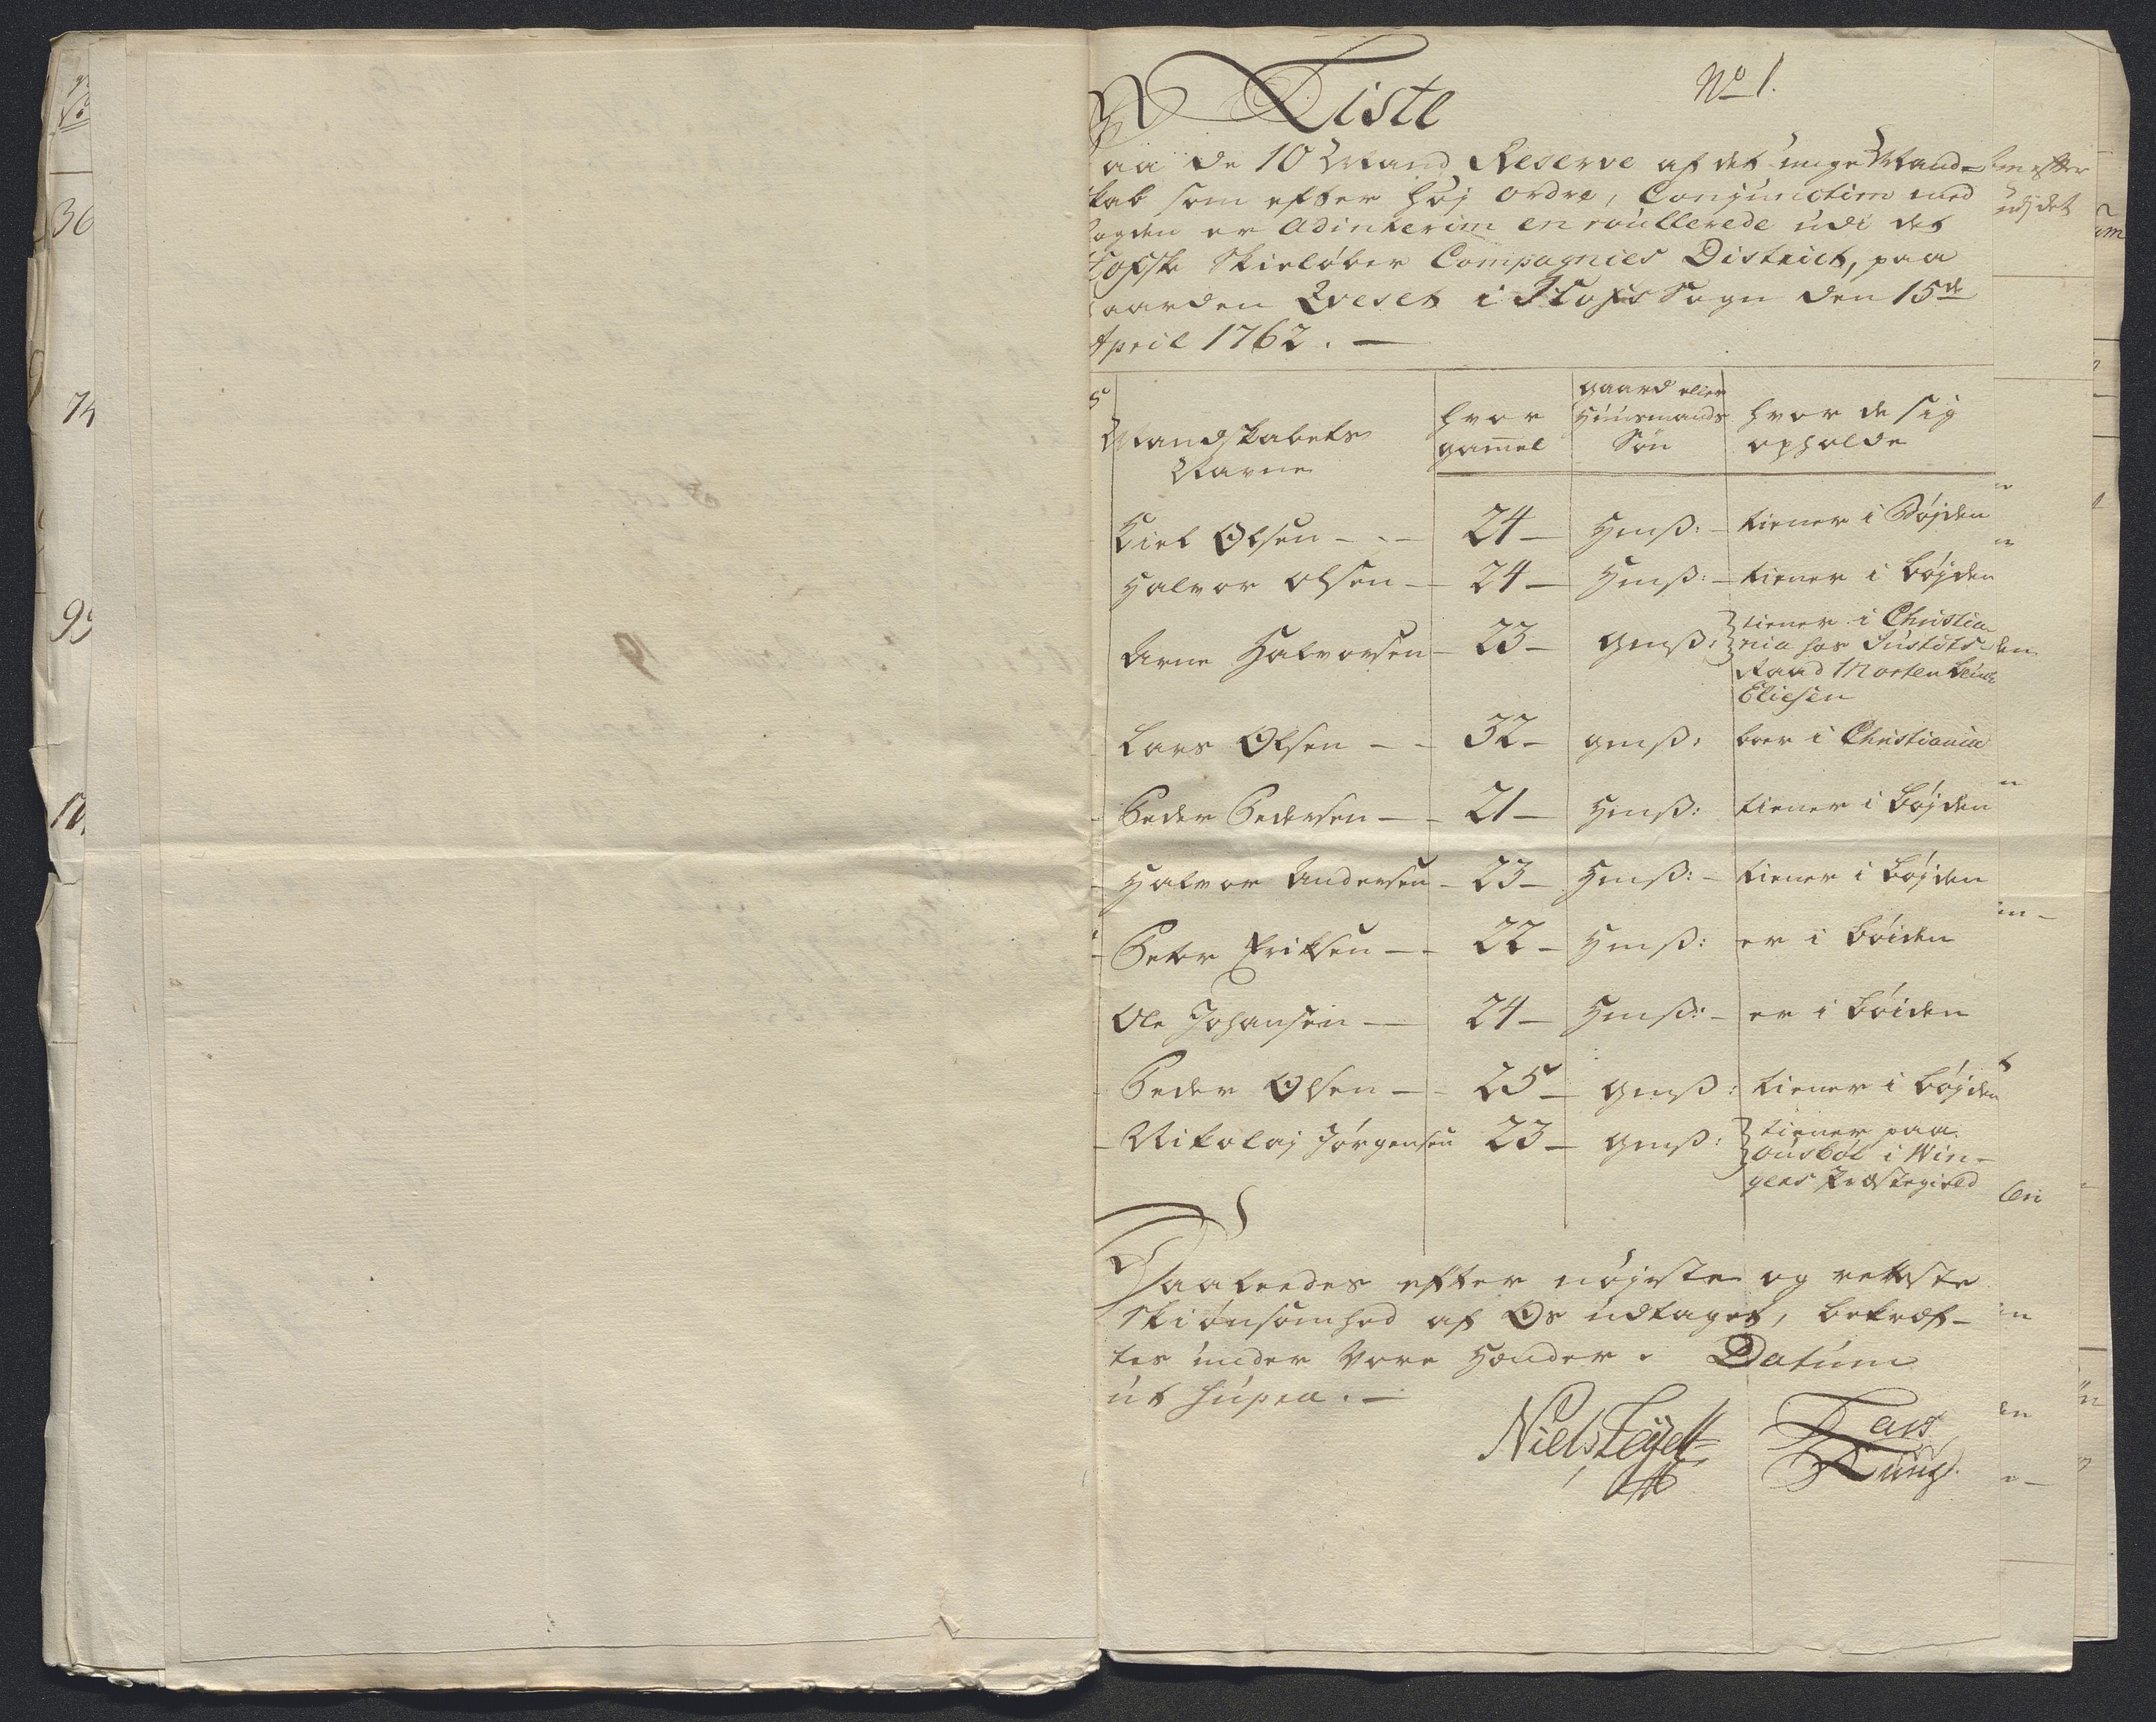 Liste
No 1.
aa de 10 Mand Reserve af det unge Mand-
kab som efter høj ordre, Conjunctim med
ogden er Adinterim enroullerede udi det
Skieløber Compagnies District, paa
aarden Qveset i Hofs Sogn den 15de
April 1762. —
Mandskabets Navne
hvor gamel
gaard eller Huusmands Søn
hvor de sig opholde
Kiel Olsen - - - 24 - Hmß: - tiener i Bøjden
Halvor Olsen - 24 - Hmß: - tiener i bøjden
Arne Halvorsen - 23 - gmß: tiener i Christia
nia hos Justits-
Raad Morten
Eliesen
Lars Olsen - - 32 - gmß: boer i Christiania
Peder Pedersen - - 21 - Hmß: tiener i bøjden
Halvor Andersen - 23 - Hmß: - tiener i bøjden
Peter Eriksen - - 22 - Hmß: er i bøiden
Ole Johansen - 24 - Hmß: - er i bøiden
Peder Olsen - - 25 - gmß: tiener i bøjden
Nikolaj Jørgensen 23 - gmß: tiener paa
i Win-
gers Præstegield
Saaledes efter nøjeste og retteste
Skiønsomhed af Os udtaget, bekræf-
tes under Vore Hænder. Datum
ut supra. —
Niels
Lars